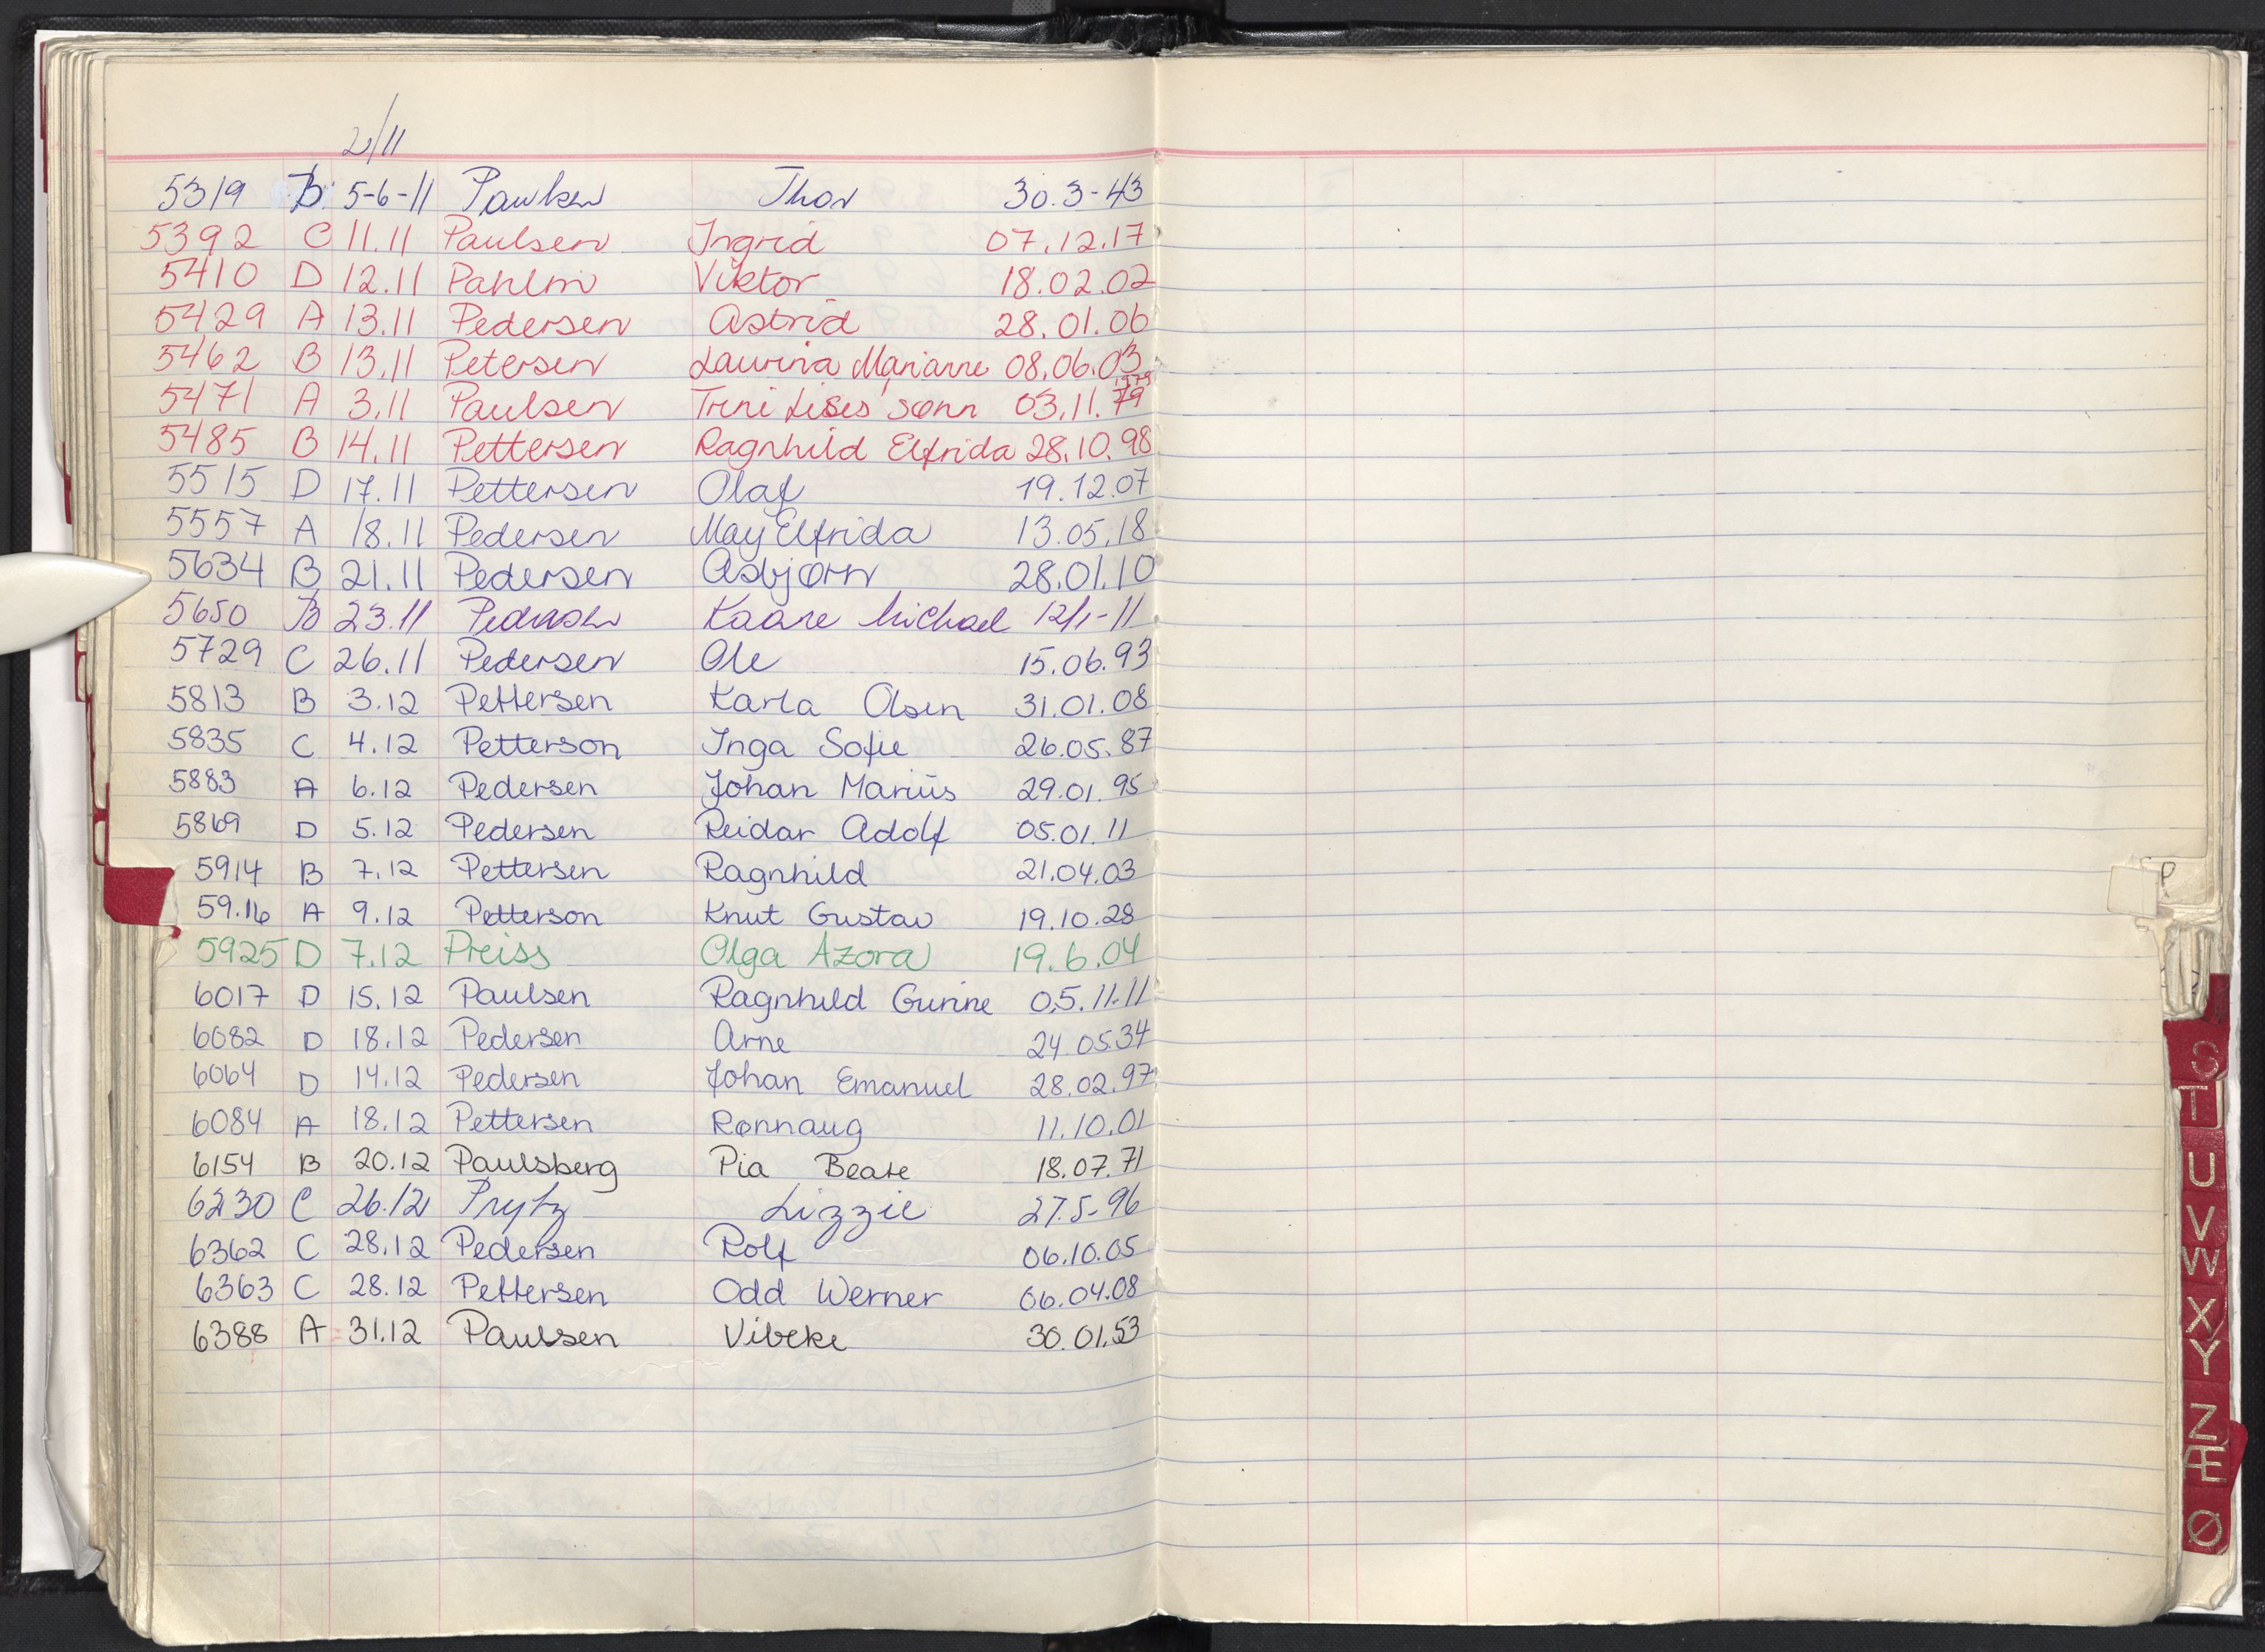 2/11
5319 B 5-6-11 Paulsen Thor 30.3-43
5392 C 11.11 Paulsen Ingrid 07.12.17
5410 D 12.11 Pahlm Viktor 18.02.02
5429 A 13.11 Pedersen Astrid 28.01.06
5462 B 13.11 Petersen Laurina Marianne 08.06.03
5471 A 3.11 Paulsen Trini Lises sønn 03.11.79 1979
5485 B 14.11 Pettersen Ragnhild Elfrida 28.10.98
5515 D 17.11 Pettersen Olaf 19.12.07
5557 A 18.11 Pedersen May Elfrida 13.05.18
5634 B 21.11 Pedersen Asbjørn 28.01.10
5650 B 23.11 Pedersen Kaare Michael 12/1-11
5729 C 26.11 Pedersen Ole 15.06.93
5813 B 3.12 Pettersen Karla Olsen 31.01.08
5835 C 4.12 Petterson Inga Sofie 26.05.87
5883 A 6.12 Pedersen Johan Marius 29.01.95
5869 D 5.12 Pedersen Reidar Adolf 05.01.11
5914 B 7.12 Pettersen Ragnhild 21.04.03
59.16 A 9.12 Petterson Knut Gustav 19.10.28
5925 D 7.12 Preiss Olga Azora 19.6.04
6017 D 15.12 Paulsen Ragnhild Gurine 05.11.11
6082 D 18.12 Pedersen Arne 24.05.34
6064 D 14.12 Pedersen Johan Emanuel 28.02.97
6084 A 18.12 Pettersen Rønnaug 11.10.01
6154 B 20.12 Paulsberg Pia Beate 18.07.71
6230 C 26.12 Prytz Lizzie 27.5-96
6362 C 28.12 Pedersen Rolf 06.10.05
6363 C 28.12 Pettersen Odd Werner 06.04.08
6388 A 31.12 Paulsen Vibeke 30.01.53
P
S
T
U
V
W
X
Y
Z
Æ
Ø